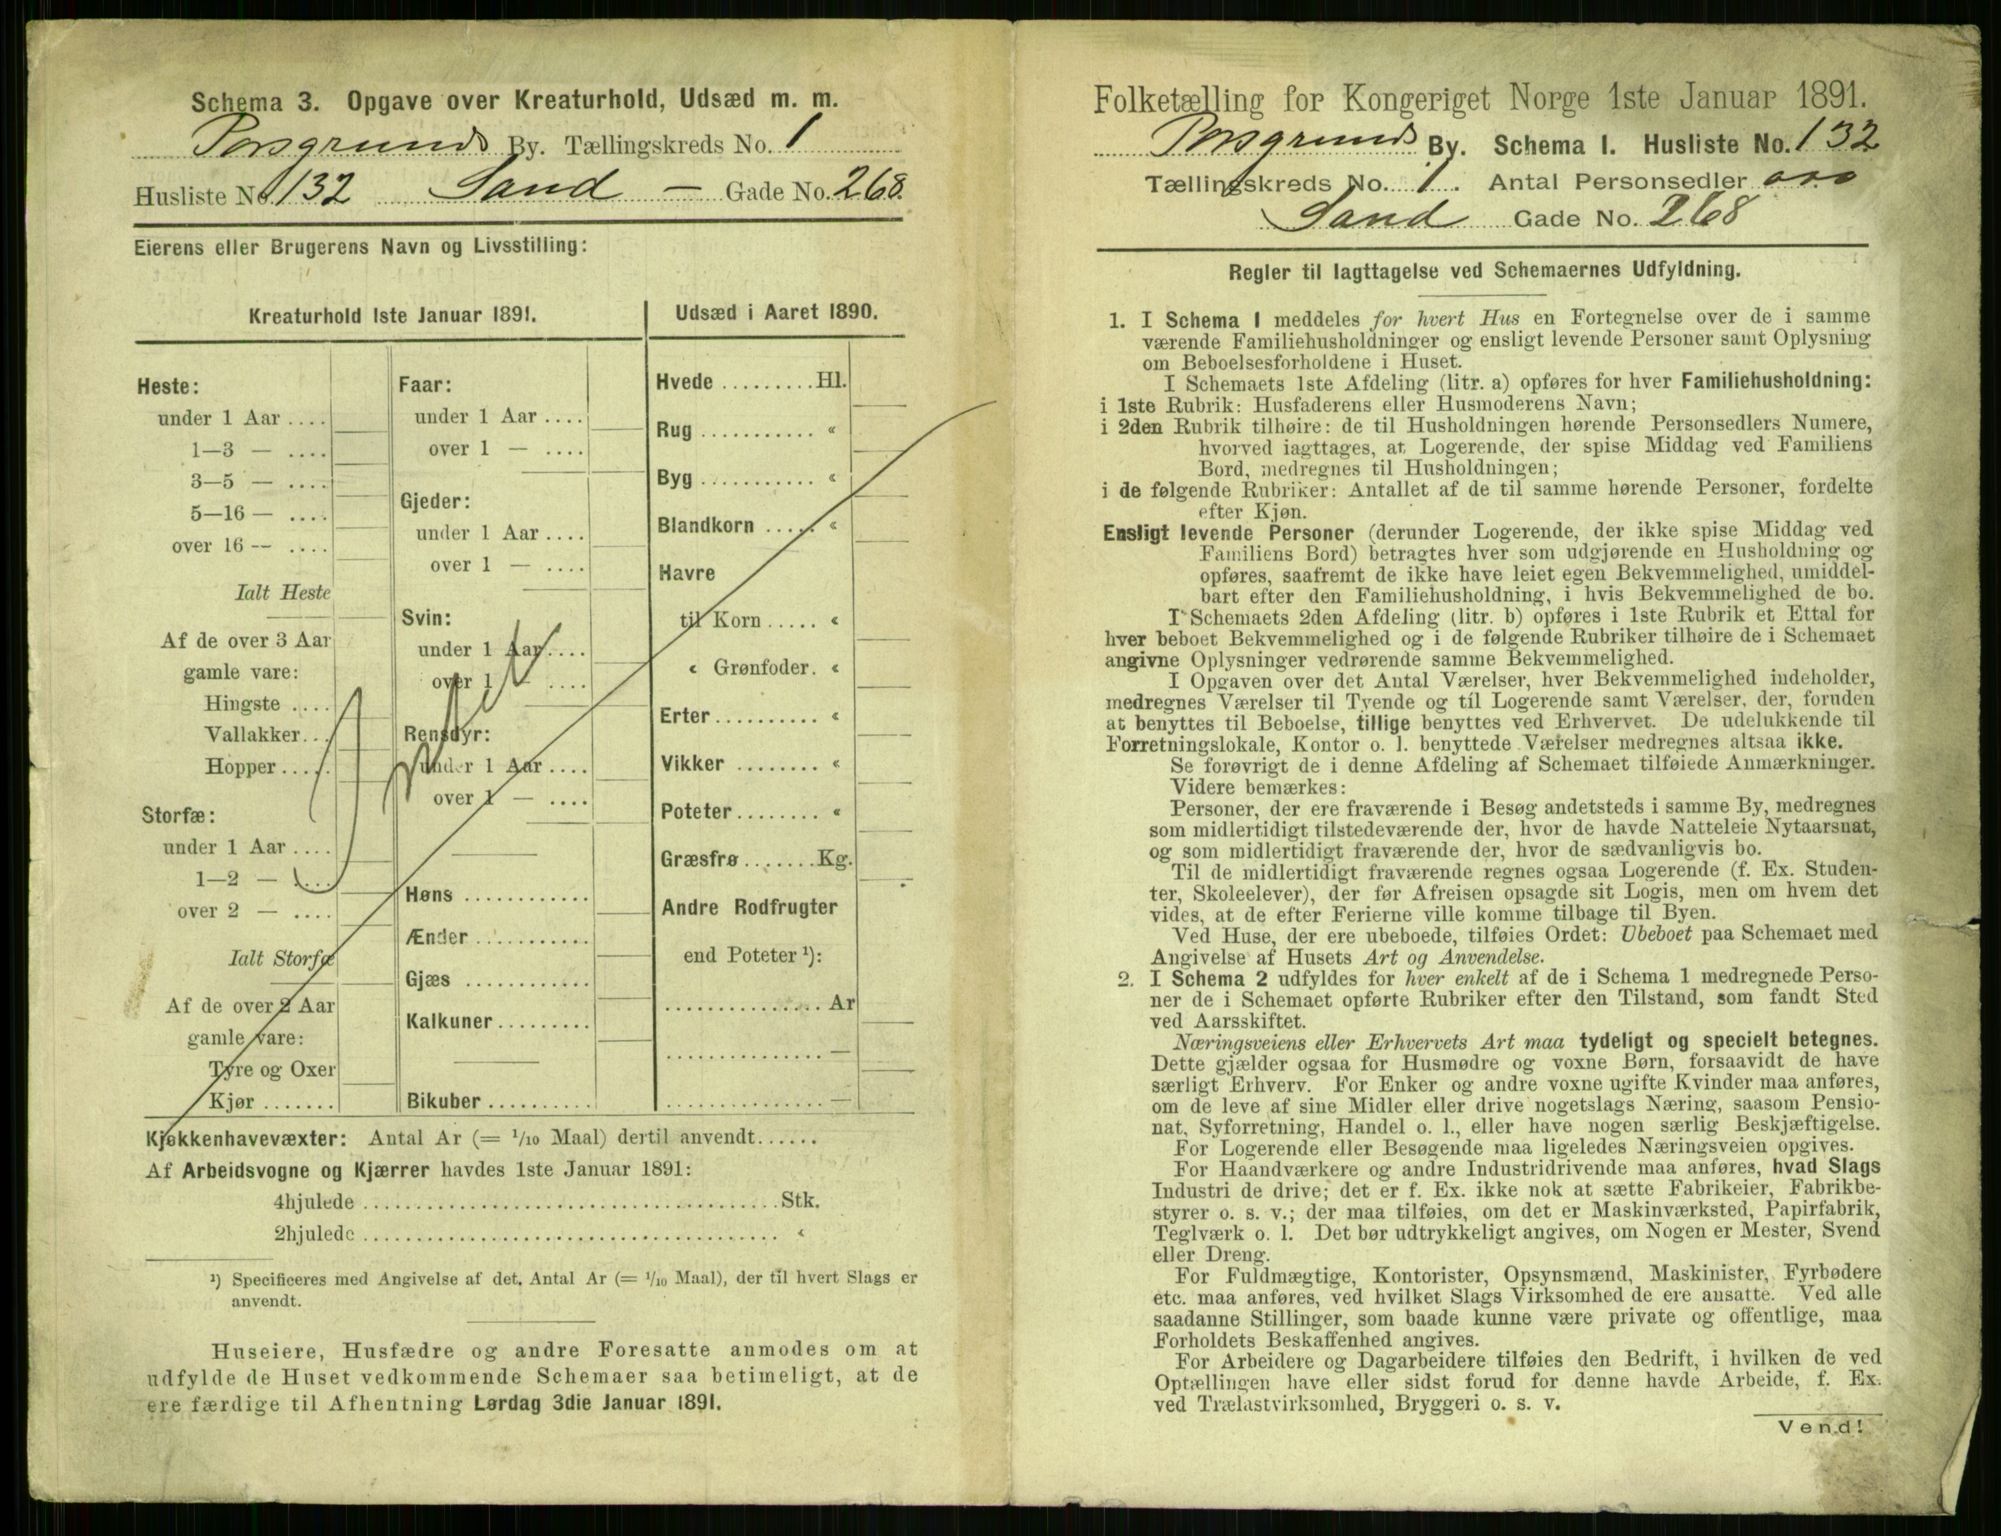 Schema 3. Opgave over Kreaturhold, Udsæd m. m.
Porsgrunds By. Tællingskreds No. 1
Husliste No. 132 Sand — Gade No. 268.
Eierens eller Brugerens Navn og Livsstilling:
Kreaturhold 1ste Januar 1891.
Heste:
under 1 Aar ....
1—3 — ....
3—5 — ....
5—16 — ....
over 16 — ....
Ialt Heste
Af de over 3 Aar
gamle vare:
Hingste ....
Vallakker...
Hopper .....
Storfæ:
under 1 Aar ....
1—2 — ....
over 2 — ....
Ialt Storfæ
Af de over 2 Aar
gamle vare:
Tyre og Oxer
Kjør .......
Faar:
under 1 Aar ....
over 1 — ....
Gjeder:
under 1 Aar ....
over 1 — ....
Svin:
under 1 Aar....
over 1 — ....
Rensdyr:
under 1 Aar ....
over 1 — ....
Høns ............
Ænder ...........
Gjæs ............
Kalkuner.........
Bikuber ..........
Udsæd i Aaret 1890.
Hvede .........Hl.
Rug ........... «
Byg ........... «
Blandkorn ..... «
Havre
til Korn ..... «
« Grønfoder. «
Erter.......... «
Vikker ........ «
Poteter........ «
Græsfrø .......Kg.
Andre Rodfrugter
end Poteter ¹):
............... Ar
............... —
............... —
Kjøkkenhavevæxter: Antal Ar (= 1/10 Maal) dertil anvendt......
Af Arbeidsvogne og Kjærrer havdes 1ste Januar 1891:
4hjulede ...................................... Stk.
2hjulede ...................................... «
¹) Specificeres med Angivelse af det. Antal Ar (= 1/10 Maal), der til hvert Slags er
anvendt.
Huseiere, Husfædre og andre Foresatte anmodes om at
udfylde de Huset vedkommende Schemaer saa betimeligt, at de
ere færdige til Afhentning Lørdag 3die Januar 1891.
Folketælling for Kongeriget Norge 1ste Januar 1891.
Porsgrunds By. Schema I. Husliste No. 132
Tællingskreds No. 1. Antal Personsedler
Sand Gade No. 268
Regler til Iagttagelse ved Schemaernes Udfyldning.
1. I Schema 1 meddeles for hvert Hus en Fortegnelse over de i samme
værende Familiehusholdninger og ensligt levende Personer samt Oplysning
om Beboelsesforholdene i Huset.
I Schemaets 1ste Afdeling (litr. a) opføres for hver Familiehusholdning:
i 1ste Rubrik: Husfaderens eller Husmoderens Navn;
i 2den Rubrik tilhøire: de til Husholdningen hørende Personsedlers Numere,
hvorved iagttages, at Logerende, der spise Middag ved Familiens
Bord, medregnes til Husholdningen;
i de følgende Rubriker: Antallet af de til samme hørende Personer, fordelte
efter Kjøn.
Ensligt levende Personer (derunder Logerende, der ikke spise Middag ved
Familiens Bord) betragtes hver som udgjørende en Husholdning og
opføres, saafremt de ikke have leiet egen Bekvemmelighed, umiddel-
bart efter den Familiehusholdning, i hvis Bekvemmelighed de bo.
I Schemaets 2den Afdeling (litr. b) opføres i 1ste Rubrik et Ettal for
hver beboet Bekvemmelighed og i de følgende Rubriker tilhøire de i Schemaet
angivne Oplysninger vedrørende samme Bekvemmelighed.
I Opgaven over det Antal Værelser, hver Bekvemmelighed indeholder,
medregnes Værelser til Tyende og til Logerende samt Værelser, der, foruden
at benyttes til Beboelse, tillige benyttes ved Erhvervet. De udelukkende til
Forretningslokale, Kontor o. l. benyttede Værelser medregnes altsaa ikke.
Se forøvrigt de i denne Afdeling af Schemaet tilføiede Anmærkninger.
Videre bemærkes:
Personer, der ere fraværende i Besøg andetsteds i samme By, medregnes
som midlertidigt tilstedeværende der, hvor de havde Natteleie Nytaarsnat,
og som midlertidigt fraværende der, hvor de sædvanligvis bo.
Til de midlertidigt fraværende regnes ogsaa Logerende (f. Ex. Studen-
ter, Skoleelever), der før Afreisen opsagde sit Logis, men om hvem det
vides, at de efter Ferierne ville komme tilbage til Byen.
Ved Huse, der ere ubeboede, tilføies Ordet: Ubeboet paa Schemaet med
Angivelse af Husets Art og Anvendelse.
2. I Schema 2 udfyldes for hver enkelt af de i Schema 1 medregnede Perso-
ner de i Schemaet opførte Rubriker efter den Tilstand, som fandt Sted
ved Aarsskiftet.
Næringsveiens eller Erhvervets Art maa tydeligt og specielt betegnes.
Dette gjælder ogsaa for Husmødre og voxne Børn, forsaavidt de have
særligt Erhverv. For Enker og andre voxne ugifte Kvinder maa anføres,
om de leve af sine Midler eller drive nogetslags Næring, saasom Pensio-
nat, Syforretning, Handel o. l., eller have nogen særlig Beskjæftigelse.
For Logerende eller Besøgende maa ligeledes Næringsveien opgives.
For Haandværkere og andre Industridrivende maa anføres, hvad Slags
Industri de drive; det er f. Ex. ikke nok at sætte Fabrikeier, Fabrikbe-
styrer o. s. v.; der maa tilføies, om det er Maskinværksted, Papirfabrik,
Teglværk o. l. Det bør udtrykkeligt angives, om Nogen er Mester, Svend
eller Dreng.
For Fuldmægtige, Kontorister, Opsynsmænd, Maskinister, Fyrbødere
etc. maa anføres, ved hvilket Slags Virksomhed de ere ansatte. Ved alle
saadanne Stillinger, som baade kunne være private og offentlige, maa
Forholdets Beskaffenhed angives.
For Arbeidere og Dagarbeidere tilføies den Bedrift, i hvilken de ved
Optællingen have eller sidst forud for denne havde Arbeide, f. Ex.
ved Trælastvirksomhed, Bryggeri o. s. v.
Vend!